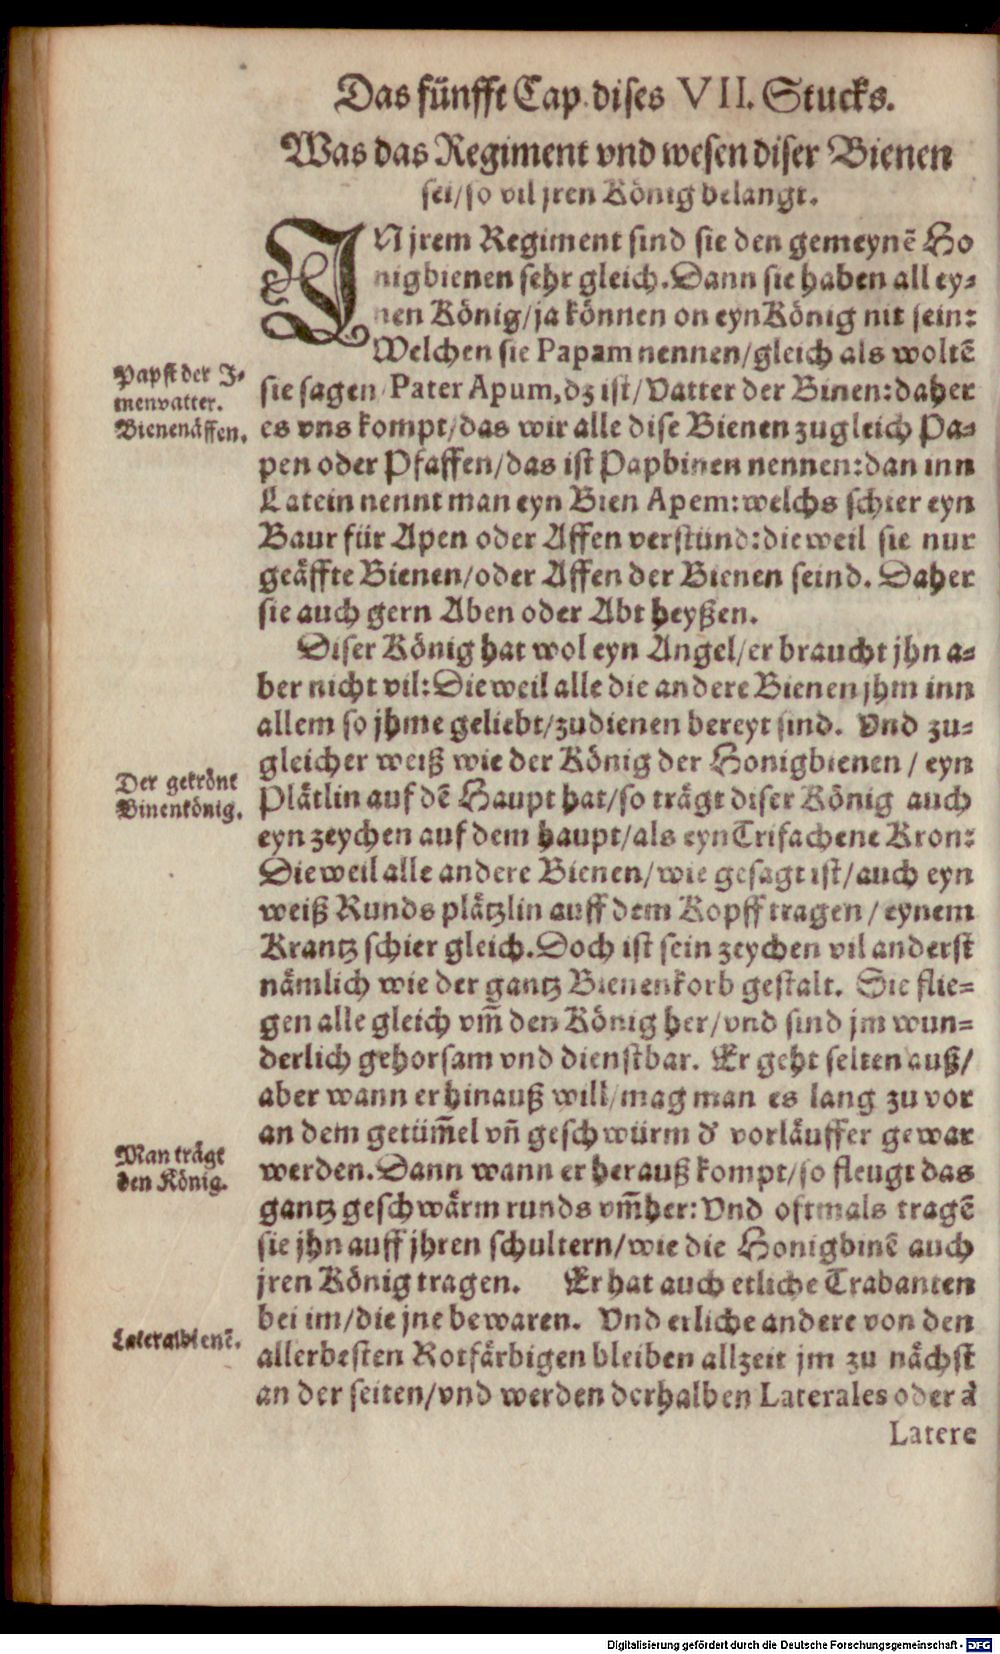 Das fünfft Cap. dises VII. Stucks.
Was das Regiment vnd wesen diser Bienen
sei/so vil jren König belangt.
IN jrem Regiment sind sie den gemeynē Ho
nigbienen sehr gleich. Dann sie haben all ey⸗
nen König/ja können on eyn König nit sein:
Welchen sie Papam nennen/gleich als woltē
Papst der J⸗
menvatter.
Bienenäffen.
sie sagen/Pater Apum, dz ist/Vatter der Binen: daher
es vns kompt/das wir alle dise Bienen zugleich Pa⸗
pen oder Pfaffen/das ist Papbinen nennen: dan inn
Latein nennt man eyn Bien Apem: welchs schier eyn
Baur für Apen oder Affen verstünd: dieweil sie nur
geäffte Bienen/oder Affen der Bienen seind. Daher
sie auch gern Aben oder Abt heyßen.
Diser König hat wol eyn Angel/er braucht jhn a⸗
ber nicht vil: Dieweil alle die andere Bienen jhm inn
allem so jhme geliebt/zudienen bereyt sind. Vnd zu⸗
gleicher weiß wie der König der Honigbienen / eyn
Der gekrönt
Binenkönig.
Plätlin auf dē Haupt hat/so trägt diser König auch
eyn zeychen auf dem haupt/als eyn Trifachene Kron:
Dieweil alle andere Bienen/wie gesagt ist/auch eyn
weiß Runds plätzlin auff dem Kopff tragen / eynem
Krantz schier gleich. Doch ist sein zeychen vil anderst
nämlich wie der gantz Bienenkorb gestalt. Sie flie⸗
gen alle gleich vm̄ den König her/vnd sind jm wun⸗
derlich gehorsam vnd dienstbar. Er geht selten auß/
aber wann er hinauß will/mag man es lang zu vor
an dem getüm̄el vn̄ geschwürm d' vorläuffer gewar
Man trägt
den König.
werden. Dann wann er herauß kompt/so fleugt das
gantz geschwärm runds vm̄her: Vnd oftmals tragē
sie jhn auff jhren schultern/wie die Honigbinē auch
jren König tragen. Er hat auch etliche Trabanten
bei im/die jne bewaren. Vnd etliche andere von den
Lateralbienē.
allerbesten Rotfärbigen bleiben allzeit jm zu nächst
an der seiten/vnd werden derhalben Laterales oder à
Latere
Digitalisierung gefördert durch die Deutsche Forschungsgemeinschaft - DFG